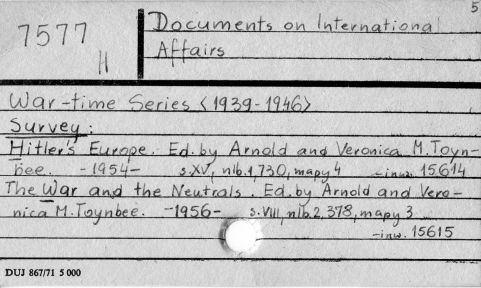 5
7577
II
Documents on International
Affairs
War-time Series <1939-1946>
Survey:
Hitler's Europe. Ed. by Arnold and Veronica M. Toyn-
bee. -1954- s.XV, nlb.1,730, mapy 4 -inw. 15614
The War and the Neutrals. Ed. by Arnold and Vero-
nica M. Toynbee. -1956- s.VIII, nlb.2,378, mapy 3
-inw. 15615
DUJ 867/71 5 000